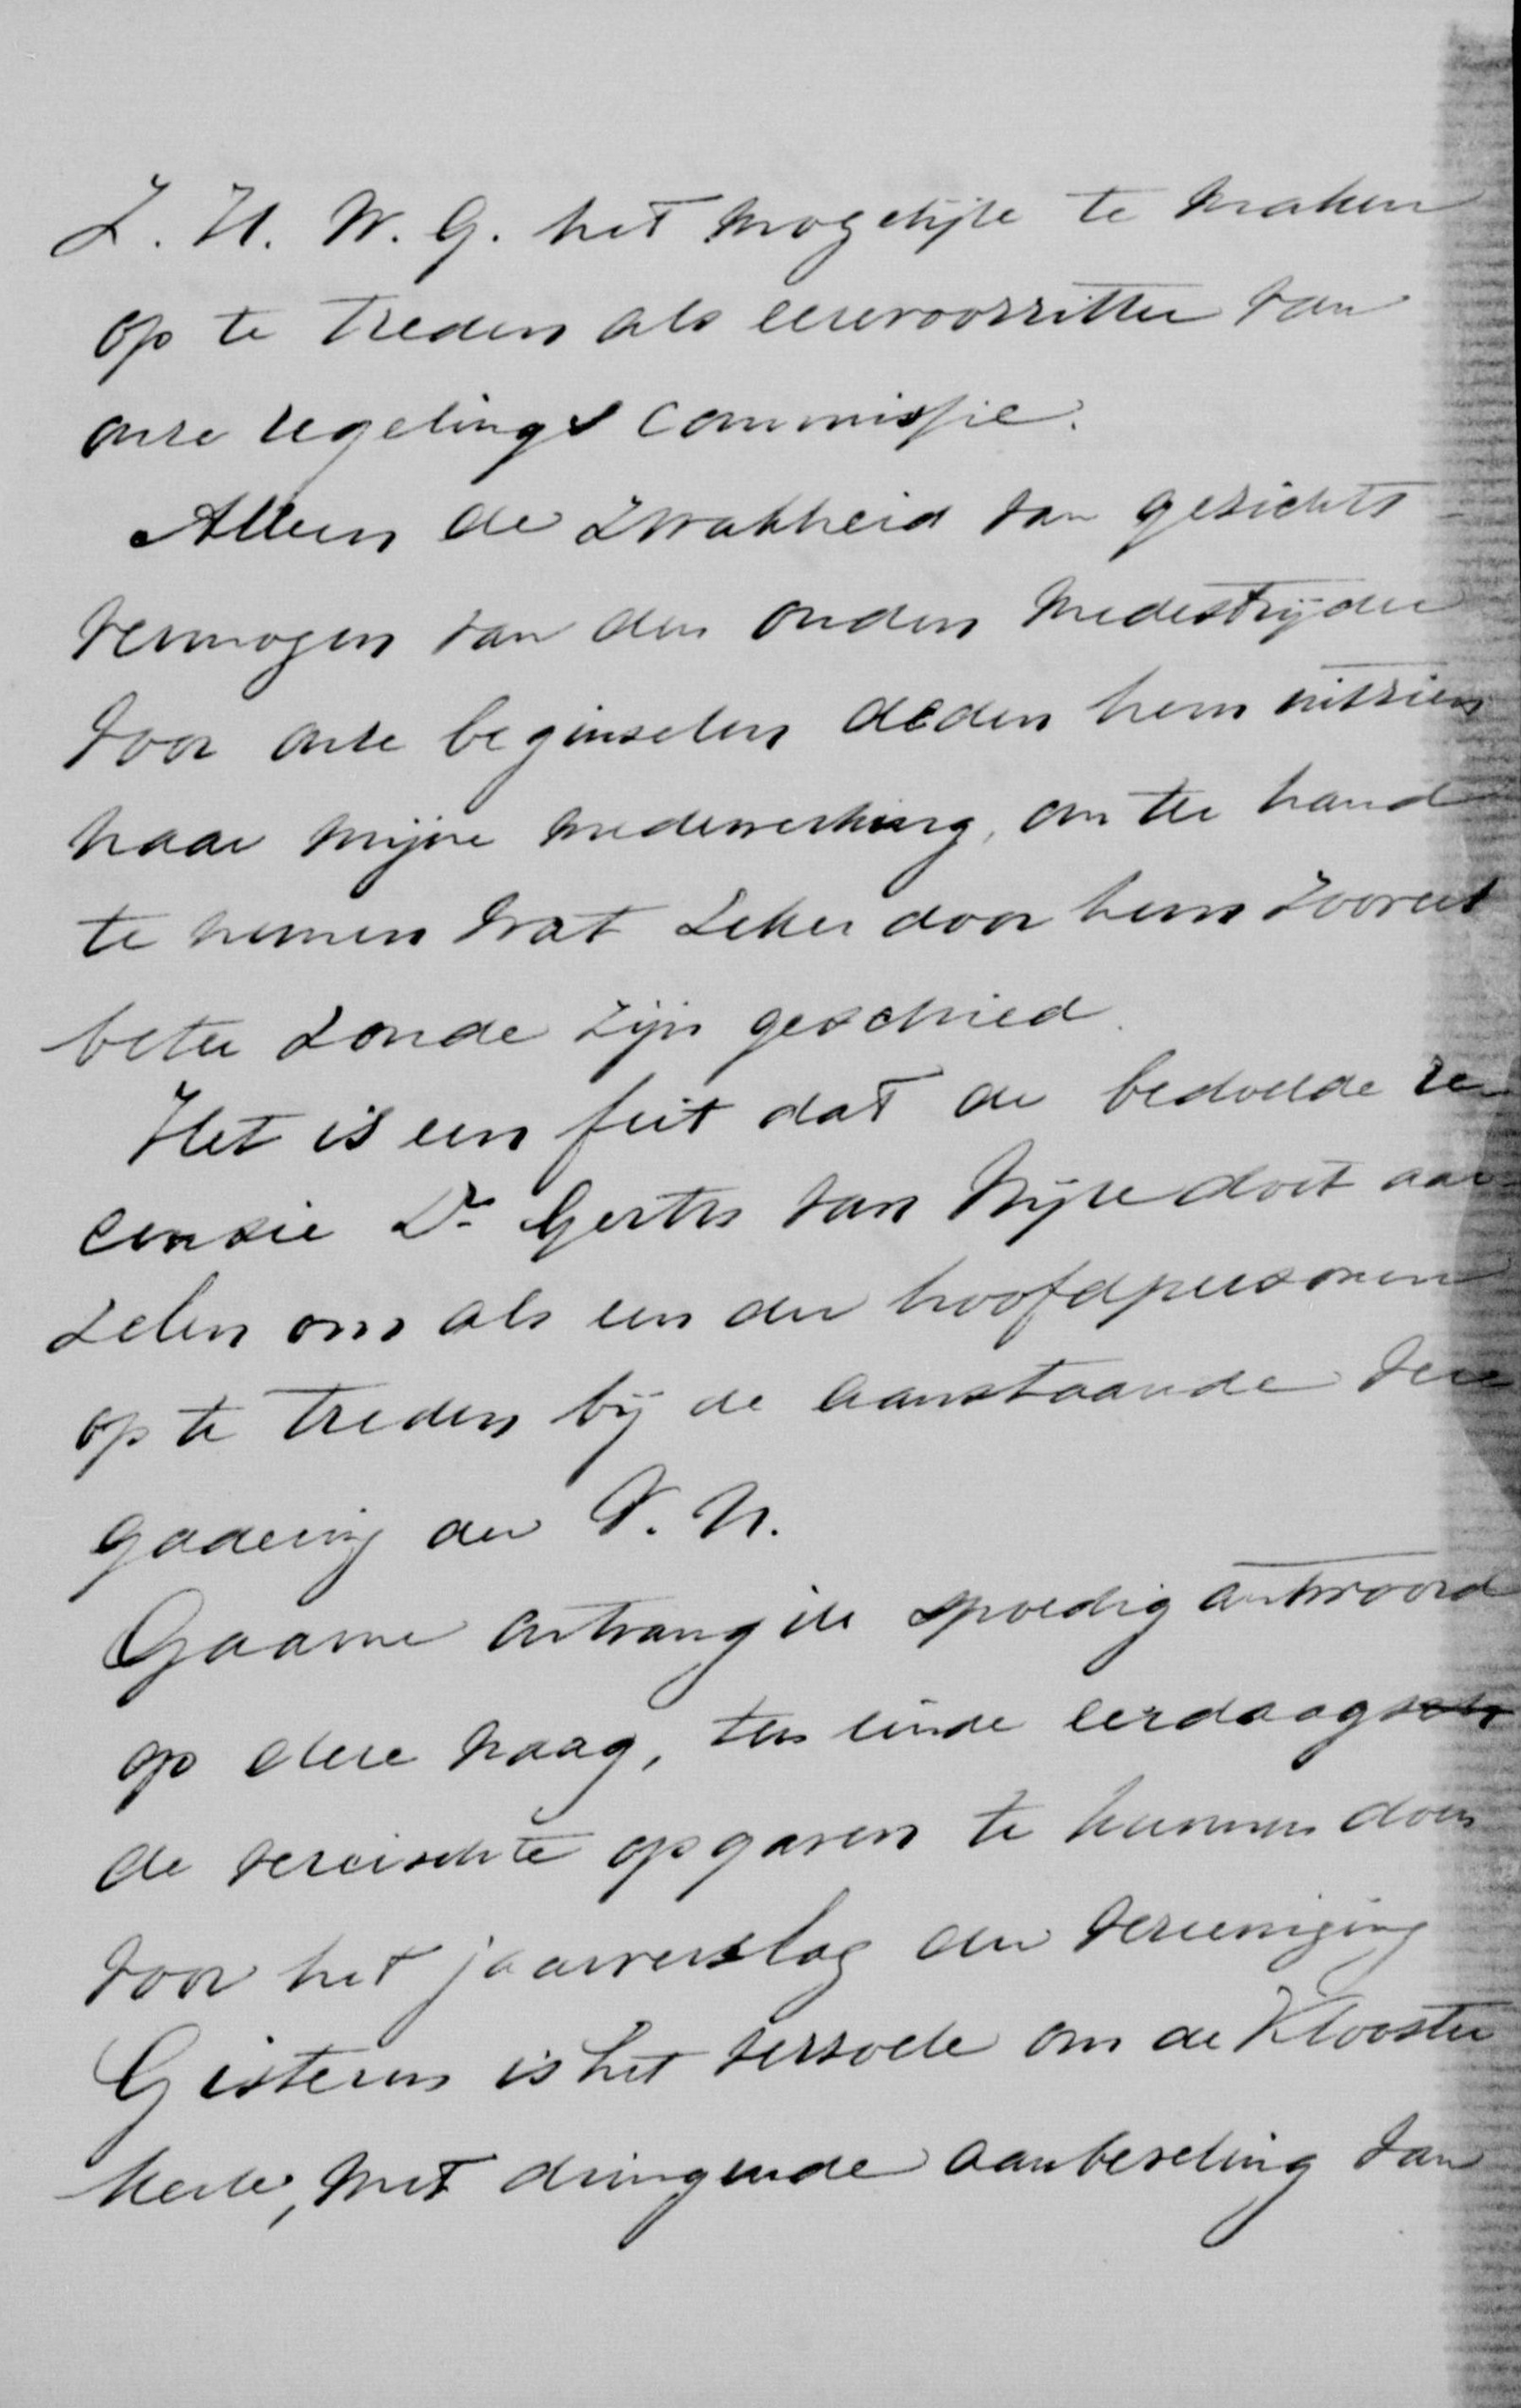 Z. H. W. G. het mogelijk te maken
op te treden als eerevoorzitter van
onze regelings commissie.
Alleen de zwakheid van gezichts
vermogen van den ouden medestrijder
voor onze beginselen deden hem uitzien
naar mijne medewerking, om ter hand
te nemen wat zeker door hem zooveel
beter zoude zijn geschied.
Het is een feit dat de bedoelde re
censie Dr Gerth van Wijk doet aar
zelen om als een der hoofdpersonen
op te treden bij de aanstaande ver
gadering der V. N.
Gaarne ontvang ik spoedig antwoord
op deze vraag, ten einde eerdaags
de vereischte opgaven te kunnen doen
voor het jaarverslag der Vereeniging
Gisteren is het verzoek om de Klooster
kerk, met dringende aanbeveling van